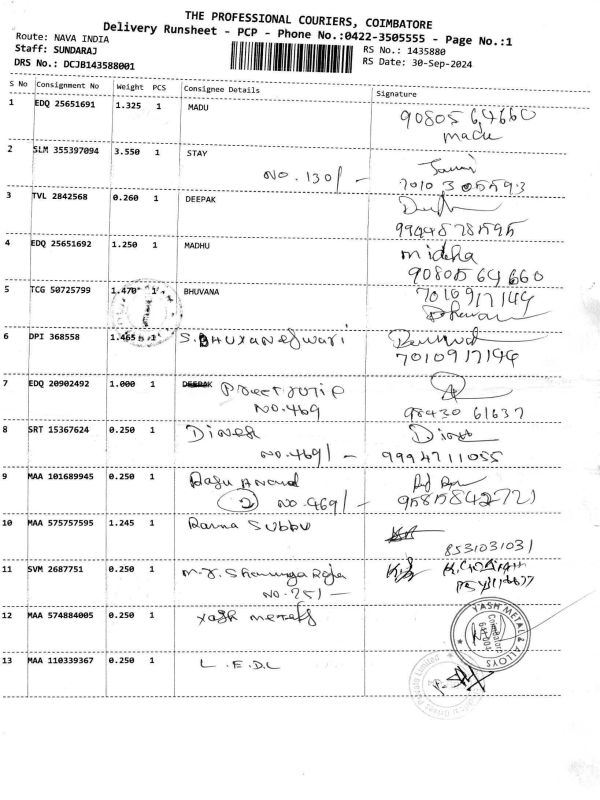 THE PROFESSIONAL COURIERS, COIMBATORE
Delivery Runsheet - PCP - Phone No.:0422-3505555 - Page No.:1
Route: NAVA INDIA
RS No.: 1435880
Staff: SUNDARAJ
RS Date: 30-Sep-2024
DRS No.: DCJB143588001
S No Consignment No Weight PCS Consignee Details Signature
1 EDQ 25651691 1.325 1 MADU
9080564660
madu
2 SLM 355397094 3.550 1 STAY
NO. 130/-
7010305593
3 TVL 2842568 0.260 1 DEEPAK
9944878595
4 EDQ 25651692 1.250 1 MADHU
9080564660
5 TCG 50725799 1.470 1 BHUVANA
7010917144
6 DPI 368558 1.465 1 S.BHUVANeswari
7010917144
7 EDQ 20902492 1.000 1 DEEPAK
NO.469
98430 61637
8 SRT 15367624 0.250 1 Dinesh
NO.469/-
9994711055
9 MAA 101689945 0.250 1 Raju Anand
2 NO.469/-
9585842721
10 MAA 575757595 1.245 1 Rama Subbu
8531031031
11 SVM 2687751 0.250 1 M.J. Shanmuga Raja
NO.251-
12 MAA 574884005 0.250 1 Yash metals
YASH METAL & ALLOYS
Coimbatore
13 MAA 110339367 0.250 1 L.E.D.L
Limited